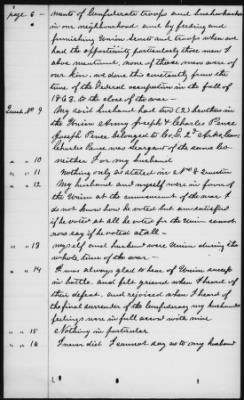 page 6 - ments of Confederate troops and bushwhackers
in our neighbourhood and by feeding and
furnishing Union Scouts and troops when we
had the opportunity particularly those men I
above mentioned, none of those men were of
our kin, we done this constantly from the
time of the Federal occupation in the fall of
1863 to the close of the war -
Quest. No 9 My said husband had two (2) brothers in
the Union Army Joseph & Charles Pence
Joseph Pence belonged to Co. 2d Arks Cav
Charles Pence was Sergeant of the same Co
" " 10 neither I or my husband
" " 11 Nothing only as stated in No 8 question
" " 12 My husband and myself were in favor of
the Union at the commencement of the war I
do not know how he voted but am satisfied
if he voted at all he voted for the Union cannot
now say if he voted at all -
" " 13 myself and husband were Union during the
whole time of the war -
" " 14 I was always glad to hear of Union success
in battle, and felt ground when I heard of
their defeat, and rejoiced when I heard of
the final surrender of the Confederacy my husbands
feelings were in full accord with mine
" " 15 Nothing in particular
" " 16 I never did I cannot say as to my husband